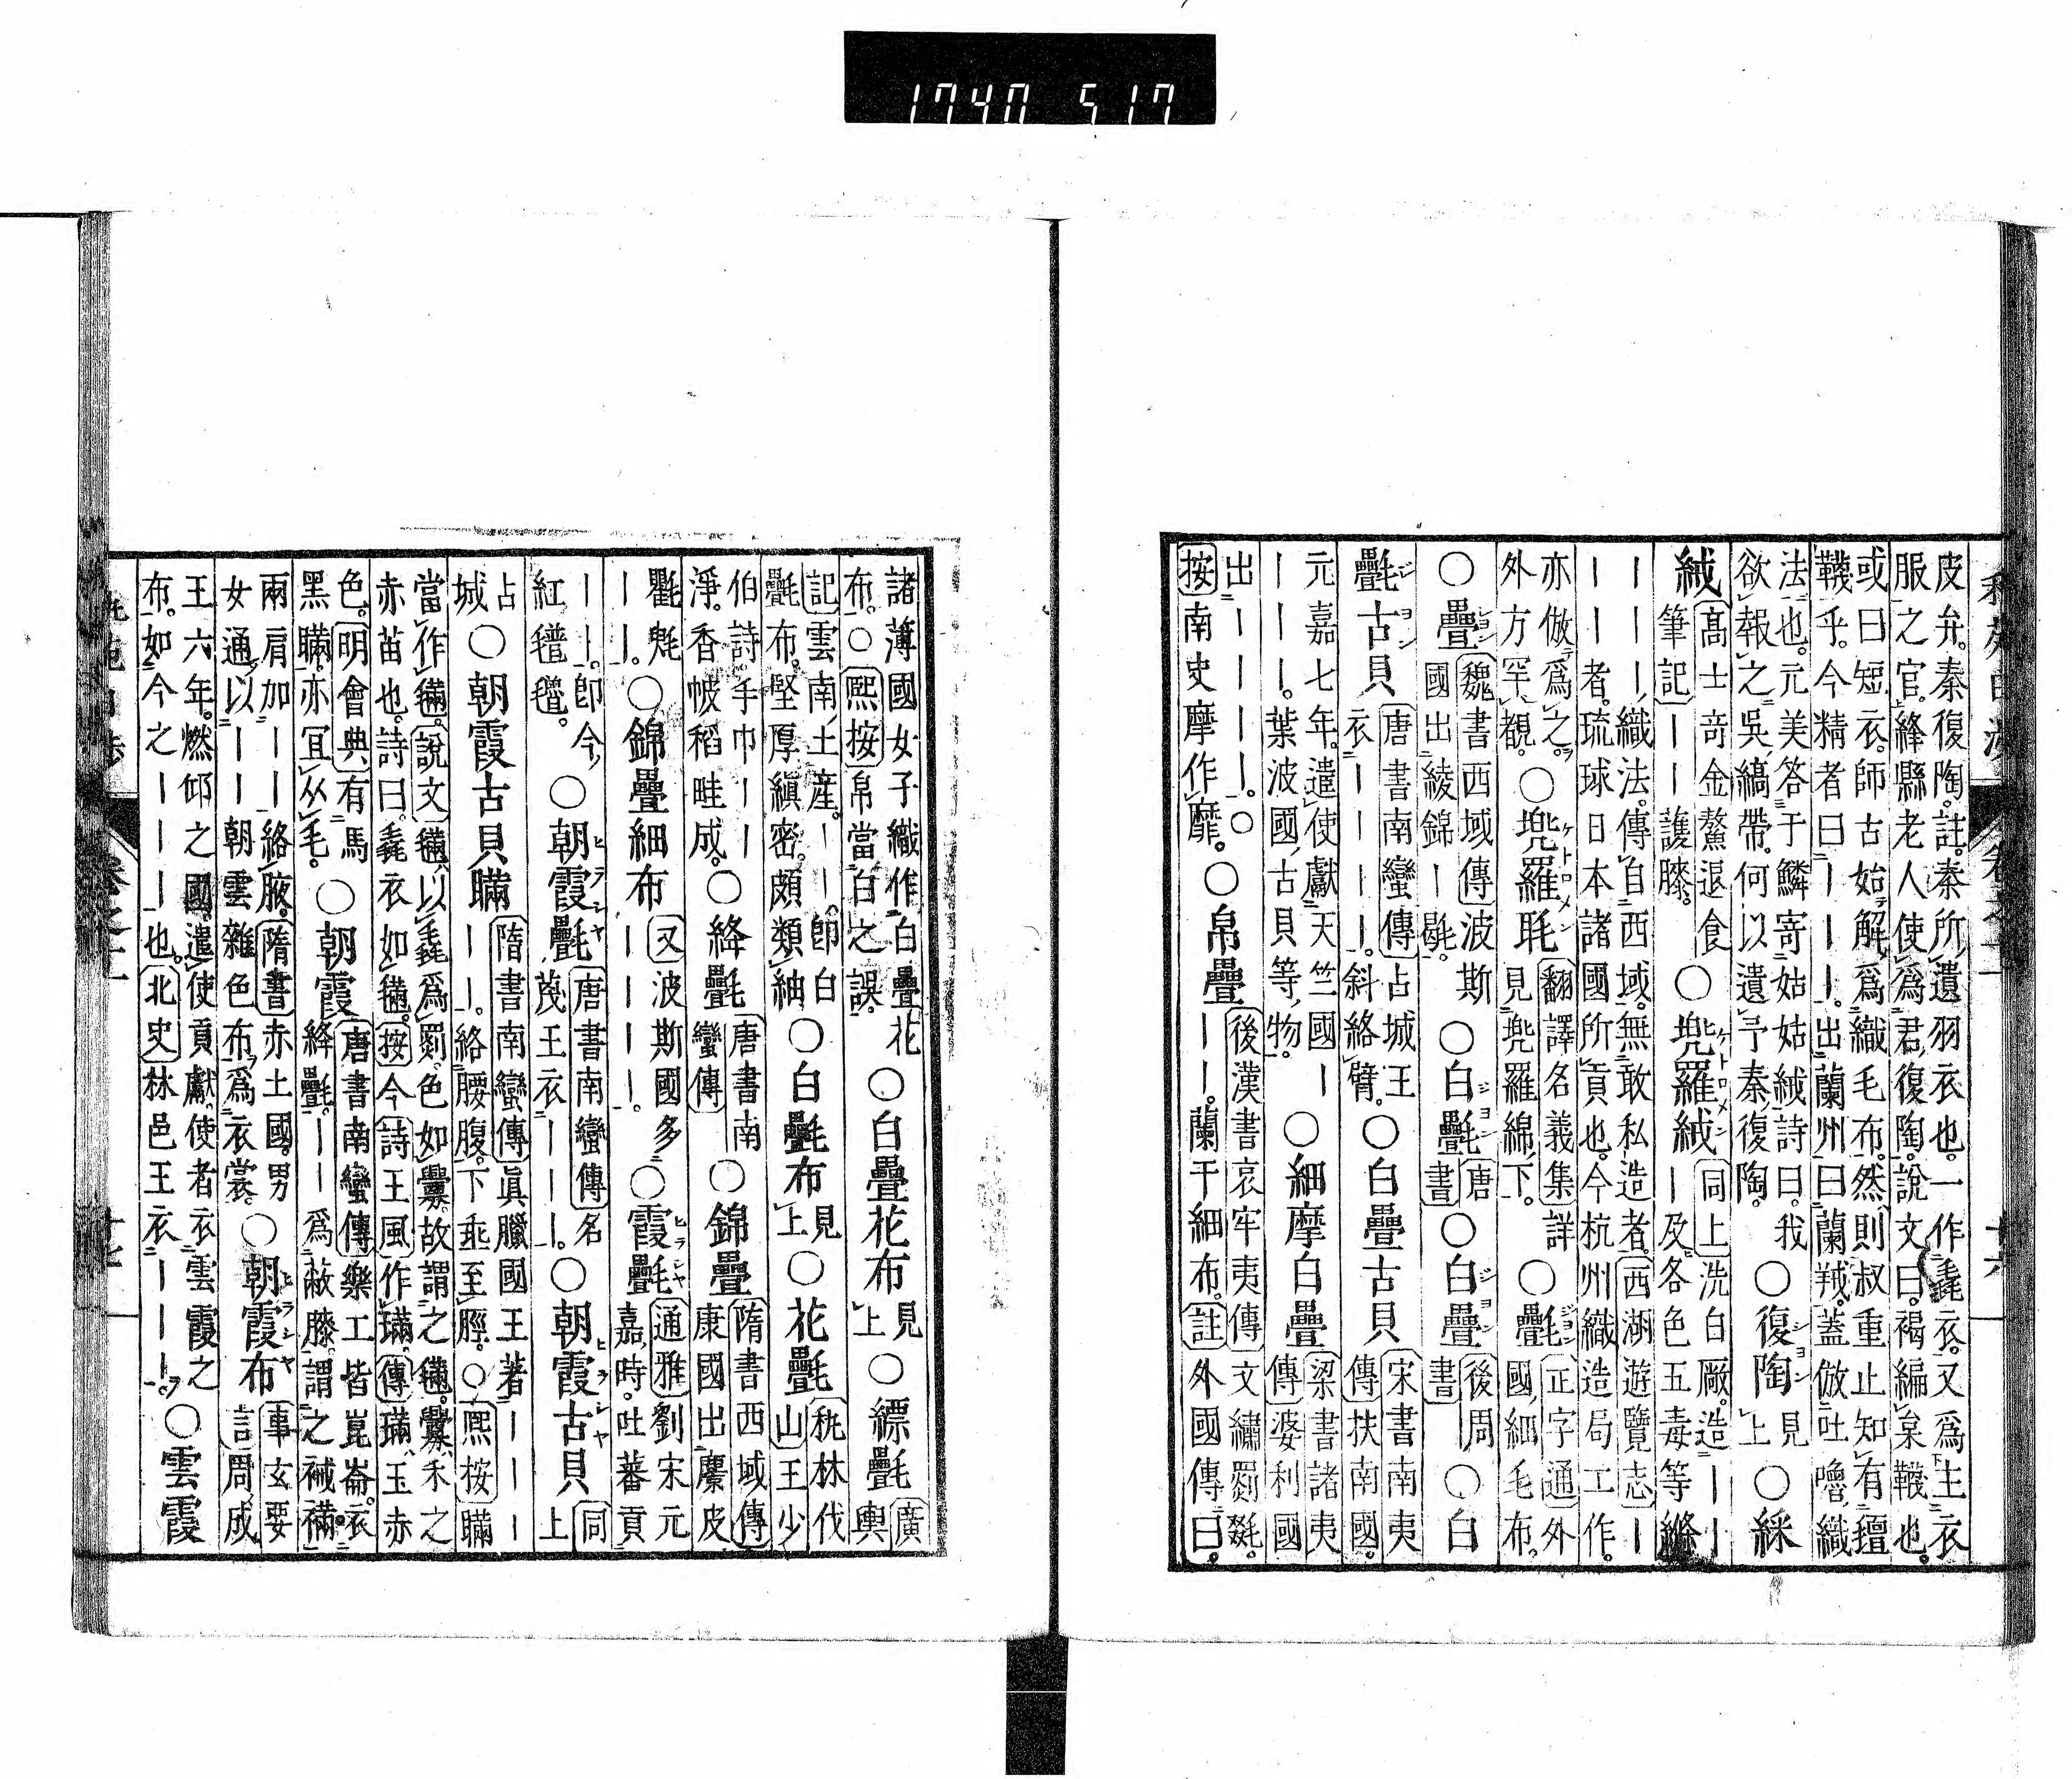 1740 517
皮弁。秦復陶。註。秦所遺羽衣也。一作毳衣。又爲主衣
服之官。絳縣老人使爲君復陶。說文曰。褐編枲韈也。
或曰短衣。師古始解爲織毛布。然則叔重止知有𣰦
韈乎。今精者曰｜｜｜。出蘭州曰蘭羢。蓋倣吐嚕織
法也。元美答于鱗寄姑姑絨詩曰。我
欲報之吳縞帶。何以遺予秦復陶。
○復陶見上○綵
絨
高士奇金鰲退食
筆記｜｜護膝。
○兜羅絨
同上洗白厰。造｜｜
｜及各色五毒等
｜｜｜織法。傳自西域。無敢私造者。西湖遊覽志｜
｜｜者。琉球日本諸國所貢也。今杭州織造局工作。
亦倣爲之。
外方罕覩。
○兜羅毦
翻譯名義集詳
見兜羅綿下。
○氎
正字通外
國細毛布。
○疊
魏書西域傳波斯
國出綾錦｜毾。
○白氎
唐書
○白疊
後周書
○白
氎古貝
唐書南蠻傳占城王
衣｜｜｜｜。斜絡臂。
○白疊古貝
宋書南夷
傳扶南國。
元嘉七年。遣使獻天竺國｜
｜｜｜。葉波國古貝等物。
○細摩白疊
梁書諸夷
傳婆利國
出｜｜｜｜。○
按南史摩作靡。
○帛疊
後漢書哀牢夷傳文繡罽毲。
｜｜。蘭干細布。註外國傳曰。
諸薄國女子織作白疊花
布。○熙按帛當白之誤。
○白疊花布見上○縹氎
廣輿
記雲南土産。｜｜即白
氎布。堅厚縝密。頗類紬
○白氎布見上○花氎
秇林伐山王少
伯詩手巾｜｜
淨。香帔稻畦成。
○絳氎
唐書南
蠻傳
○錦疊
隋書西域傳
康國出麖皮
氍毹
｜｜。
○錦疊細布
又波斯國多
｜｜｜｜。
○霞氎
通雅劉宋元
嘉時。吐蕃貢
｜｜。即今
紅氆氇。
○朝霞氎
唐書南蠻傳名
蔑王衣｜｜｜。
○朝霞古貝
同上
占
城
○朝霞古貝瞞
隋書南蠻傳眞臘國王著｜｜｜
｜｜。絡腰腹。下垂至脛。○熙按瞞
當作𣯩。說文𣯩以毳爲罽。色如虋。故謂之𣯩。虋禾之
赤苗也。詩曰。毳衣如𣯩。按今詩王風作璊。傳璊玉赤
色。明會典有馬
黑瞞。亦冝从毛。
○朝霞
唐書南蠻傳樂工皆崑崙。衣
絳氎。｜｜爲蔽膝。謂之裓襔。
兩肩加｜｜絡腋。隋書赤土國。男
女通。以｜｜朝雲雜色布爲衣裳。
○朝霞布
事玄要
言周成
王六年。燃邱之國遣使貢獻。使者衣雲霞之
布。如今之｜｜｜也。北史林邑王衣｜｜｜。
○雲霞